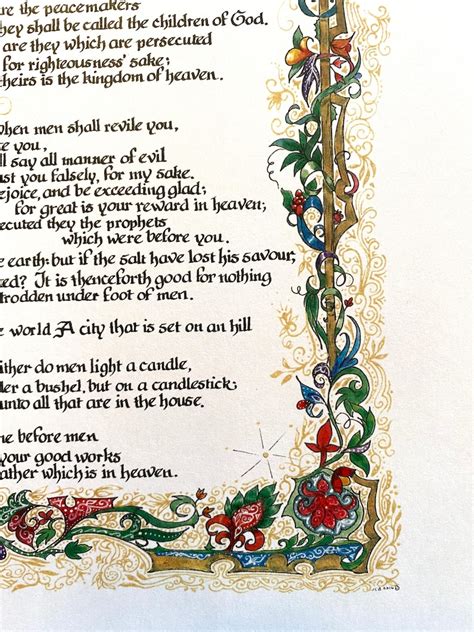 are the peacemakers
they shall be called the children of God.
are they which are persecuted
for righteousness' sake;
theirs is the kingdom of heaven.
when men shall revile you,
te you,
ll say all manner of evil
st you falsely, for my sake.
ejoice, and be exceeding glad;
for great is your reward in heaven;
ecuted they the prophets
which were before you.
e earth: but if the salt have lost his savour,
ed? It is thenceforth good for nothing
trodden under foot of men.
e world A city that is set on an hill
ither do men light a candle,
er a bushel, but on a candlestick;
unto all that are in the house.
ne before men
your good works
ather which is in heaven.